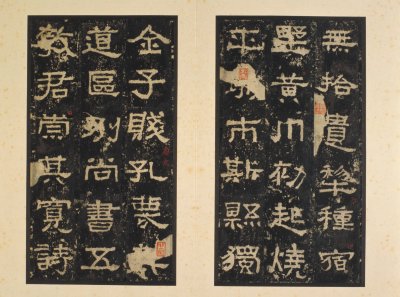 無拾遺犂種宿
野黃巾初起燒
平城市斯縣獨
全子賤孔蔑其
道區別尚書五
教君崇其寬詩